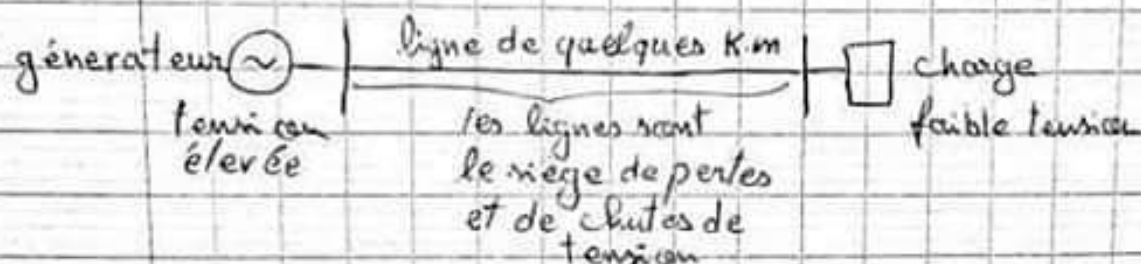 génerateur
ligne de quelques K.m
charge
tension
élevée
les lignes sont
le siège de pertes
et de chutes de
tension
faible tension